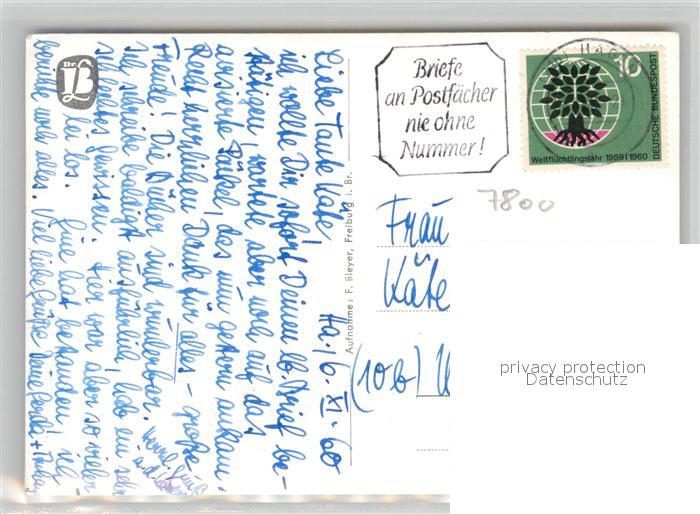 Ha. 16. XI. 60
Liebe Tante Käte!
ich wollte Dir sofort Deinen lb Brief be-
stätigen, wartete aber noch auf das
avisierte Päckel, das nun gestern ankam.
Recht herzlichen Dank für alles – große
Freude! Die Bücher sind wunderbar.
Ich schreibe baldigst ausführlich, hab ein sehr
schlechtes Gewissen. Hier war aber so vieles
bei los. hat bestanden! ich
alles. Viel liebe Grüße Deine
Dr. B
Aufnahme: F. Bleyer, Freiburg i. Br.
Briefe
an Postfächer
nie ohne
Nummer!
10
DEUTSCHE BUNDESPOST
Weltflüchtlingsjahr 1959/1960
7800
Frau
Käte
(10b)
privacy protection
Datenschutz